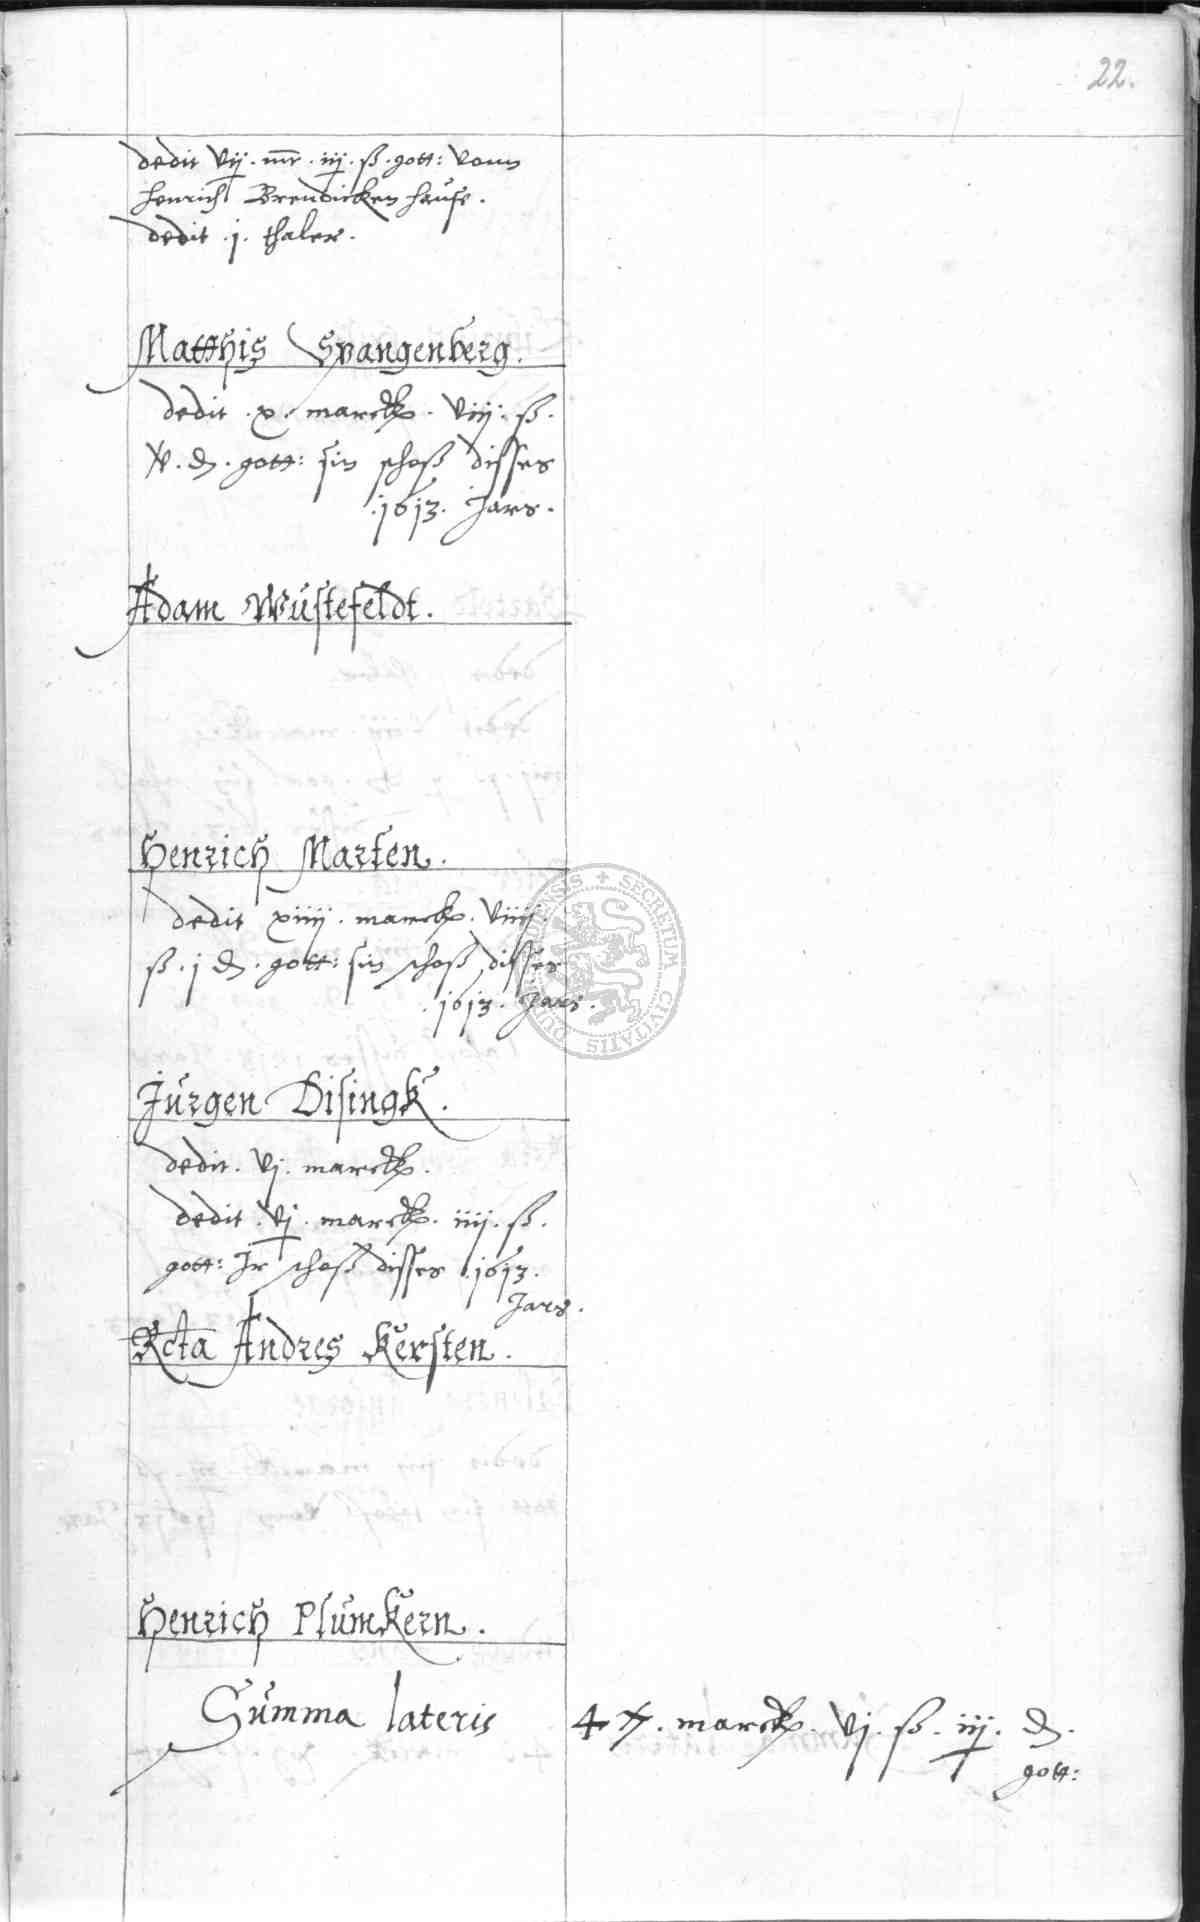 22.
dedit vij. mr. iij. ß. gott: vonn
Henrich Brendicken hause.
dedit .j. thaler.
Matthis Spangenberg.
dedit .x. marck. viij. ß.
v. d. gott: sin schoß disses
.1613. Jars.
Adam Wüstefeldt.
Henrich Marten.
dedit xiiij. marck. viiij.
ß. j d. gott: sin schoß disses
.1613. Jars.
Jürgen Disingk.
dedit. vj. marck.
dedit. vj. marck. iiij. ß.
gott: Jr schoß disses .1613.
Jars.
Rcta Andres Kersten.
Henrich Plümkern.
Summa lateris 47. marck. vj. ß. iij. d.
gott:
SECRETUM CIVITATIS